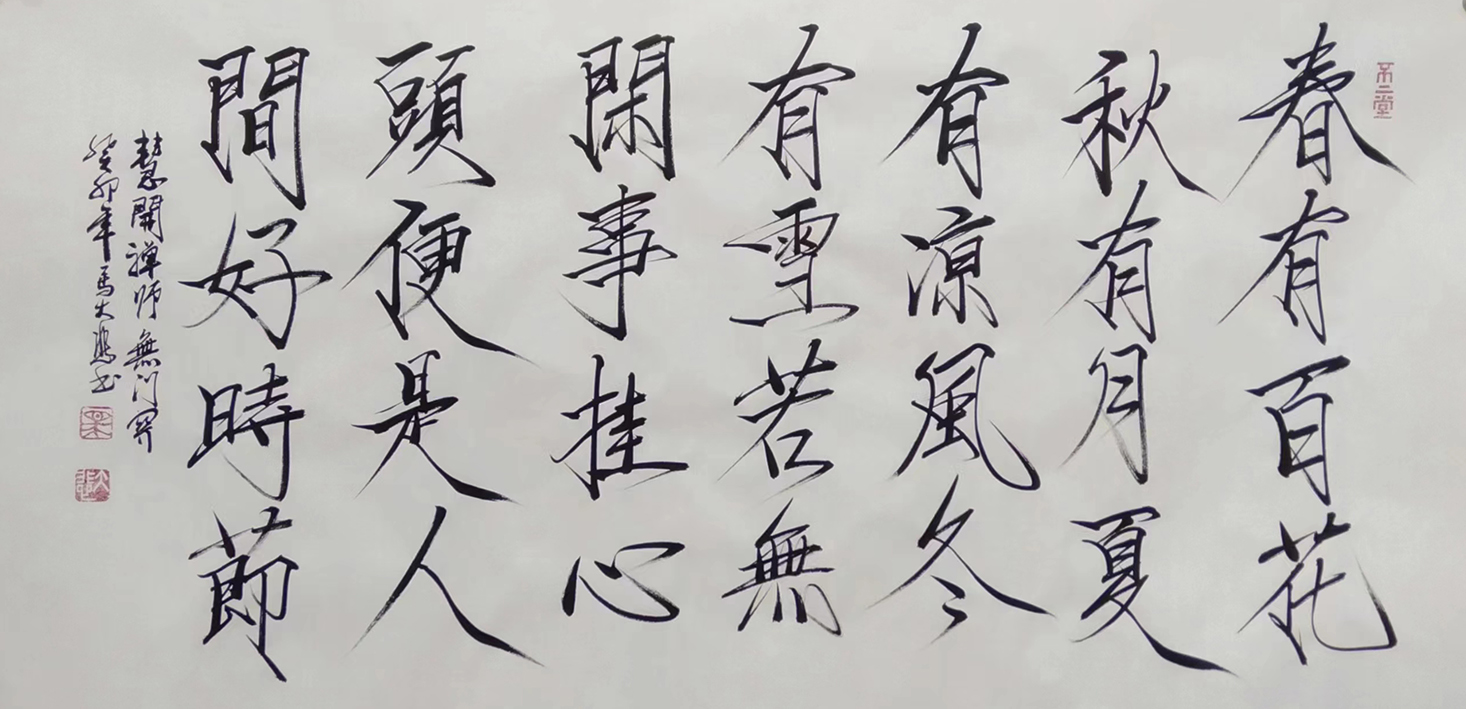 不二堂
春有百花
秋有月夏
有涼風冬
有雪若無
閑事挂心
頭便是人
間好時節
慧開禪師無門關
癸卯年馬大鴻書